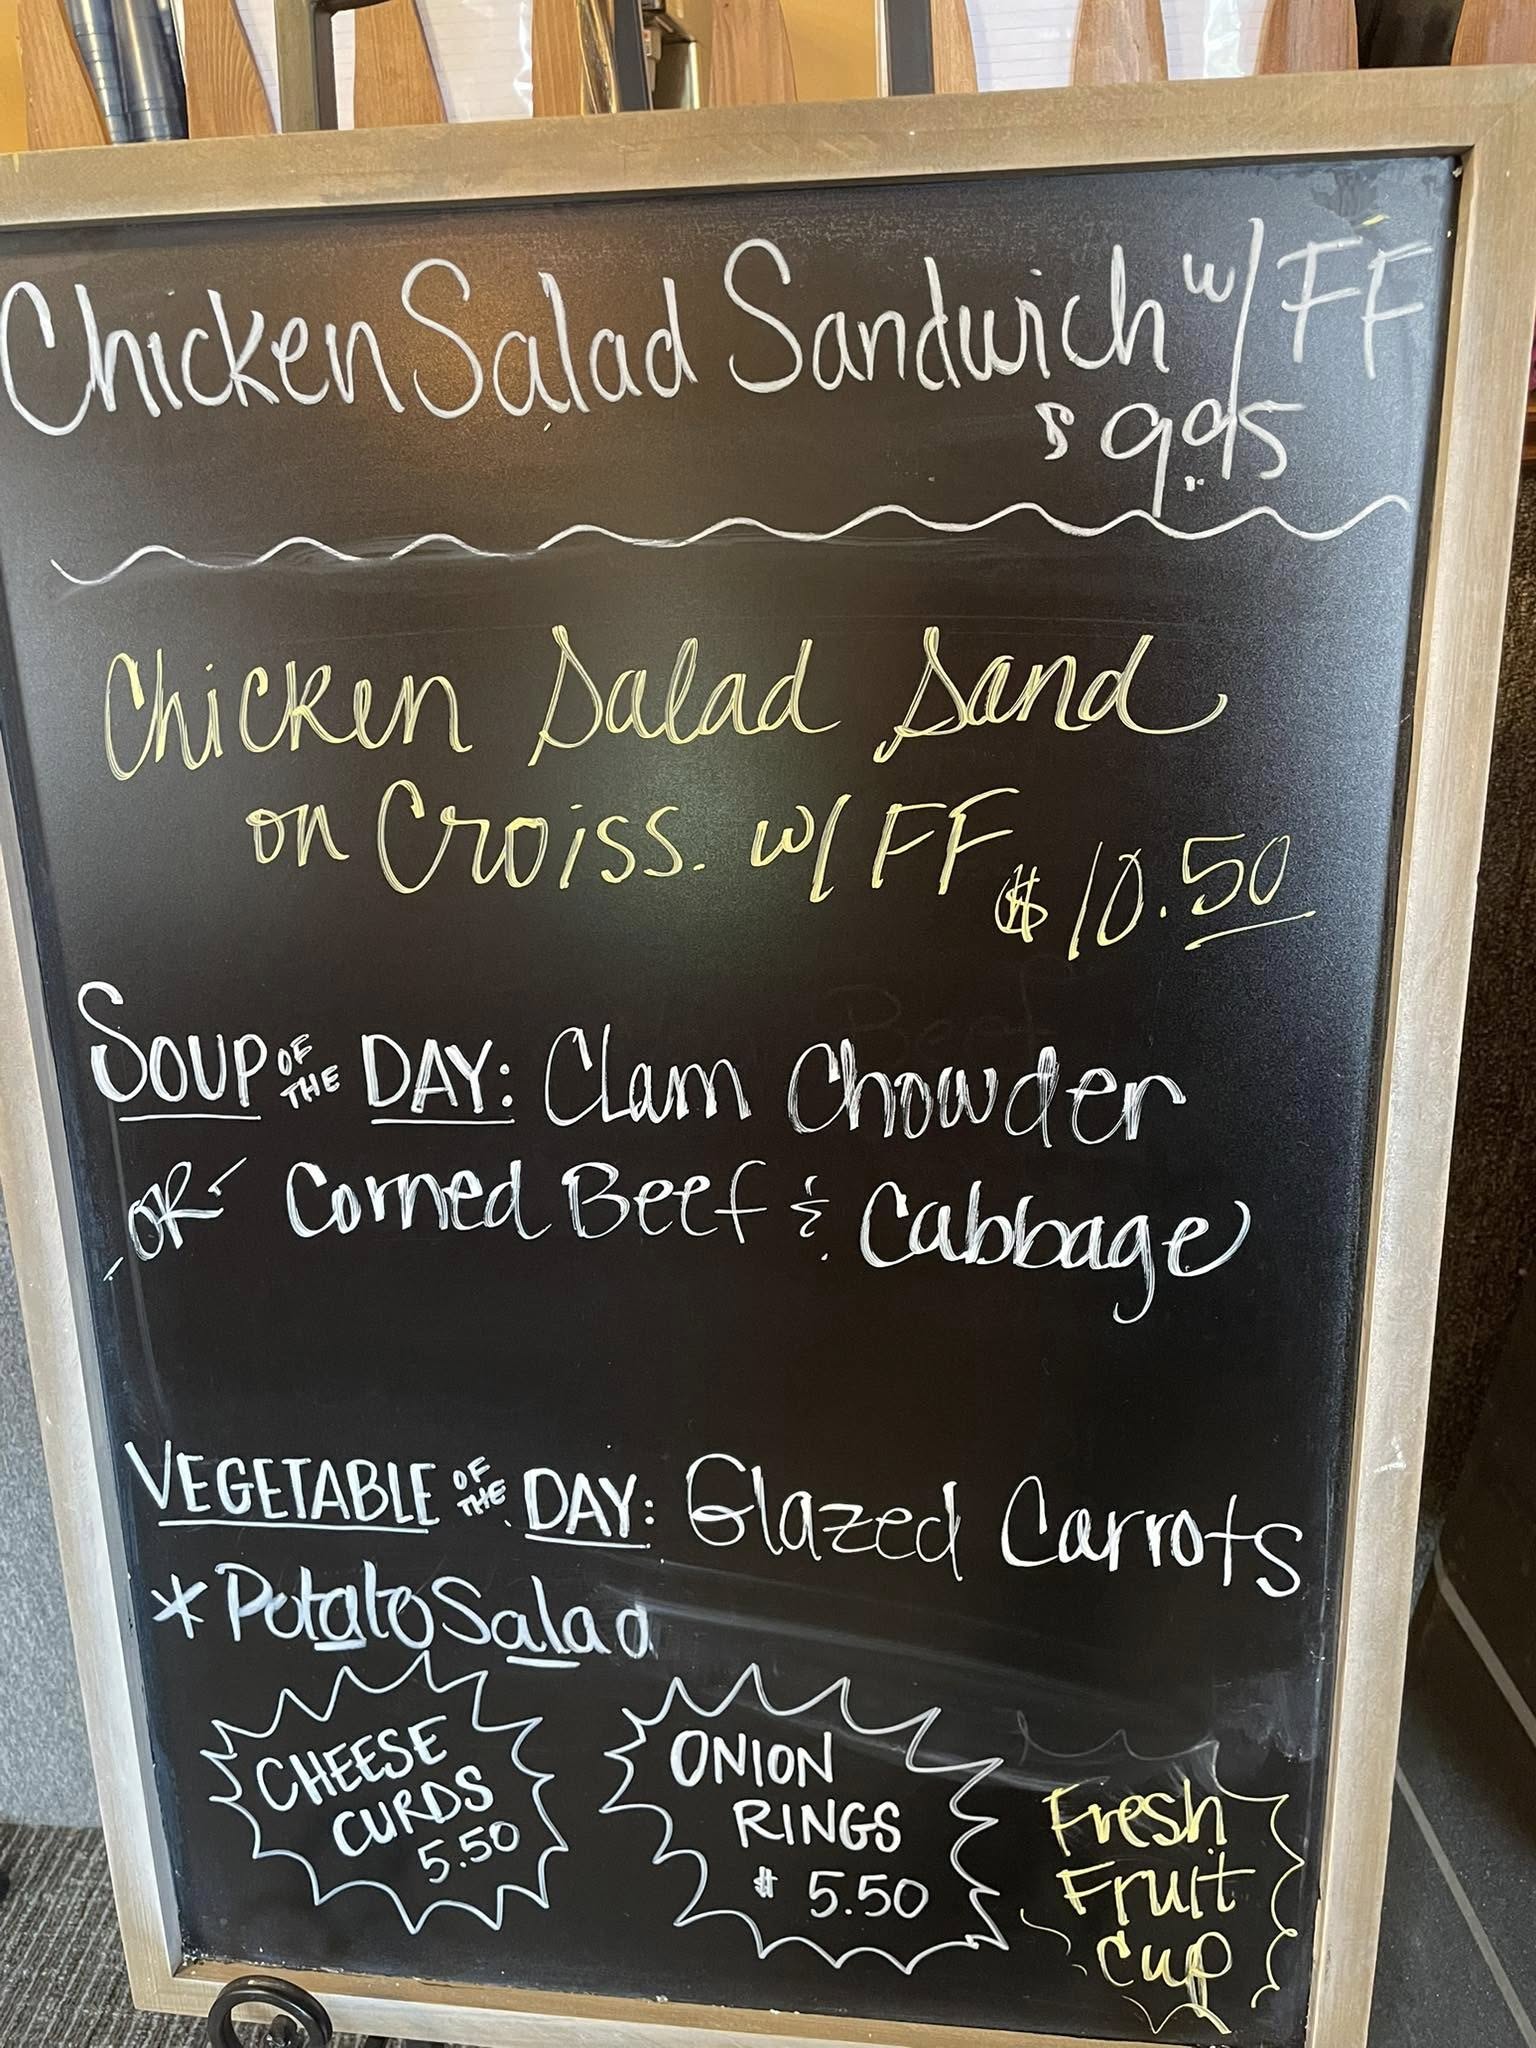 Chicken Salad Sandwich w/ FF
$9.95
Chicken Salad Sand
on Croiss. w/ FF
$10.50
SOUP OF THE DAY: Clam Chowder
OR Corned Beef & Cabbage
VEGETABLE OF THE DAY: Glazed Carrots
*Potato Salad
CHEESE
CURDS
5.50
ONION
RINGS
$5.50
Fresh
Fruit
Cup